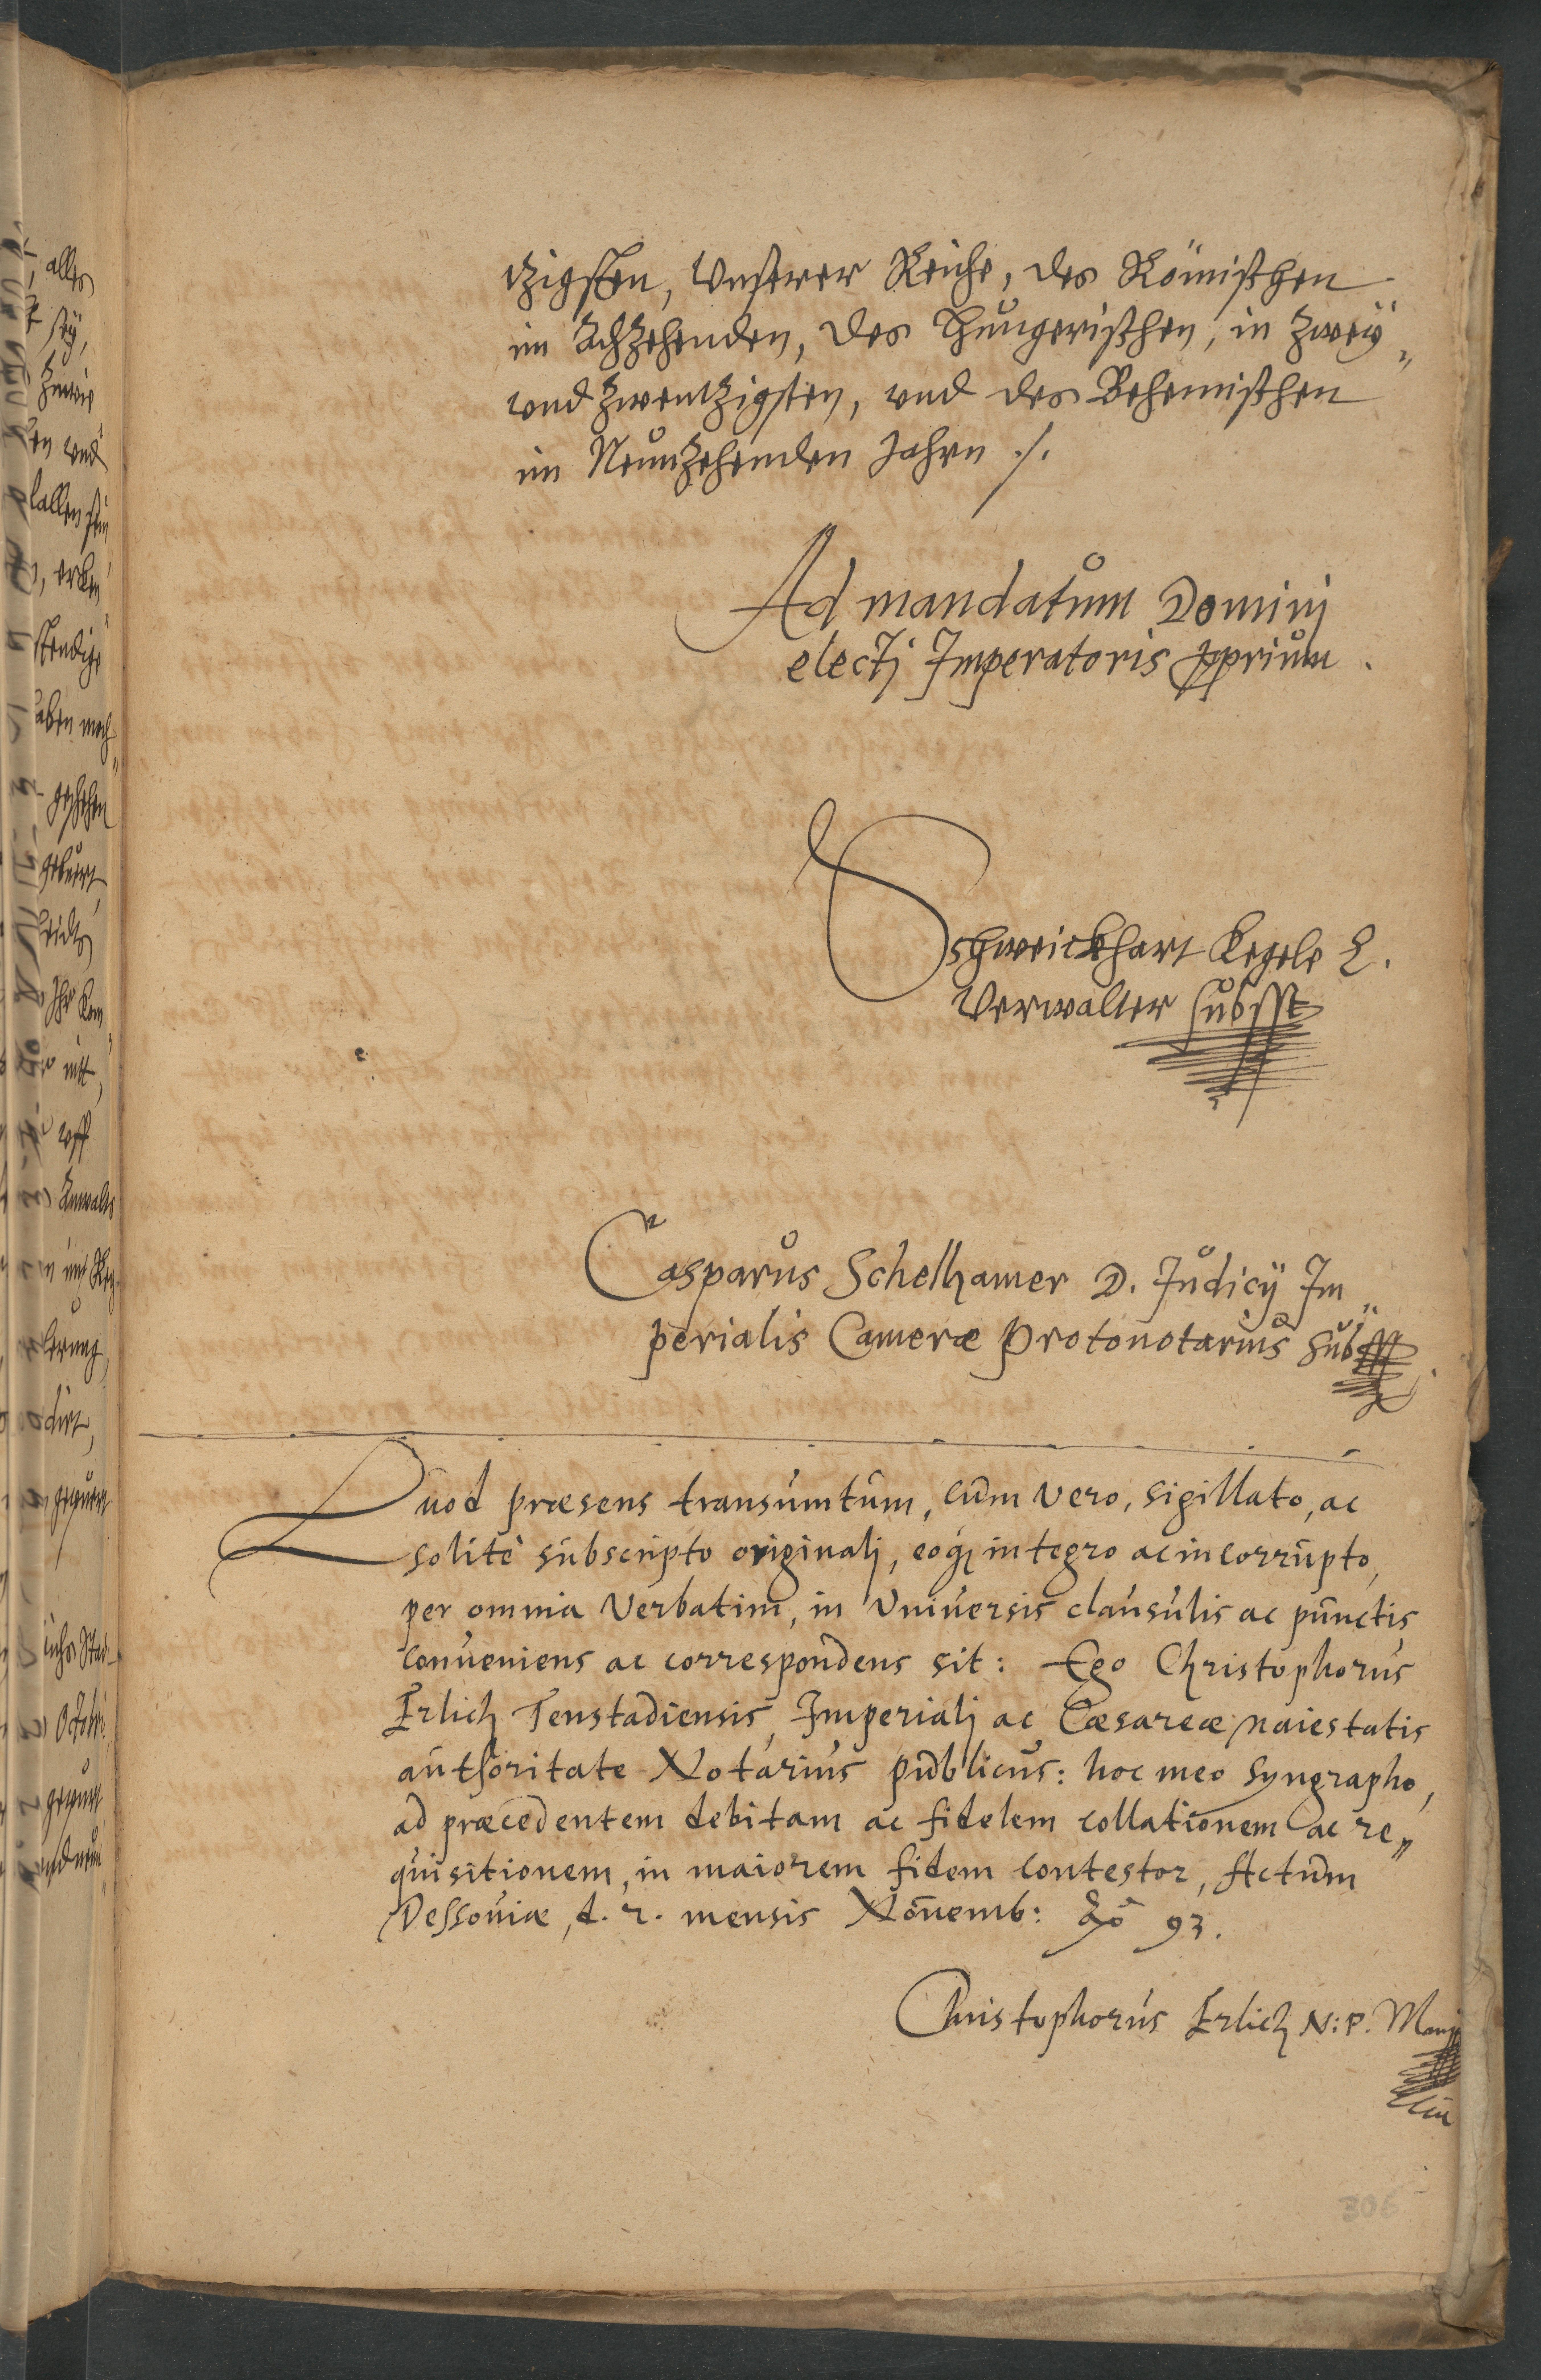 tzigsten, Unserer Reiche, des Römischen
im Achzehenden, des Hungerischen, in zwey„
und zwentzigsten, und des Behemischen
im Neunzehenden Jahrn ./.
Ad mandatum Domini
electj Imperatoris pprium.
Schweickhart Kegele L.
Verwalter subsst
Casparus Schelhamer D. Judicij Im„
perialis Cameræ Protonotarius subsst
Quod præsens transumtum, cum vero, sigillato, ac
solitè subscripto originalj, eoq; integro ac incorrupto,
per omnia Verbatim, in Universis clausulis ac punctis
conveniens ac correspondens sit: Ego Christophorus
Erlich Tenstadiensis, Imperialj ac Cæsareæ Maiestatis
authoritate Notarius publicus: hoc meo Syngrapho,
ad præcedentem debitam ac fidelem collationem ac re„
quisitionem, in maiorem fidem contestor, Actum
Dessoviæ, d. 2. mensis Novemb: Ao 93.
Christophorus Erlich N: P. Manu
306
alles
sey,
und
uff
Anwalts